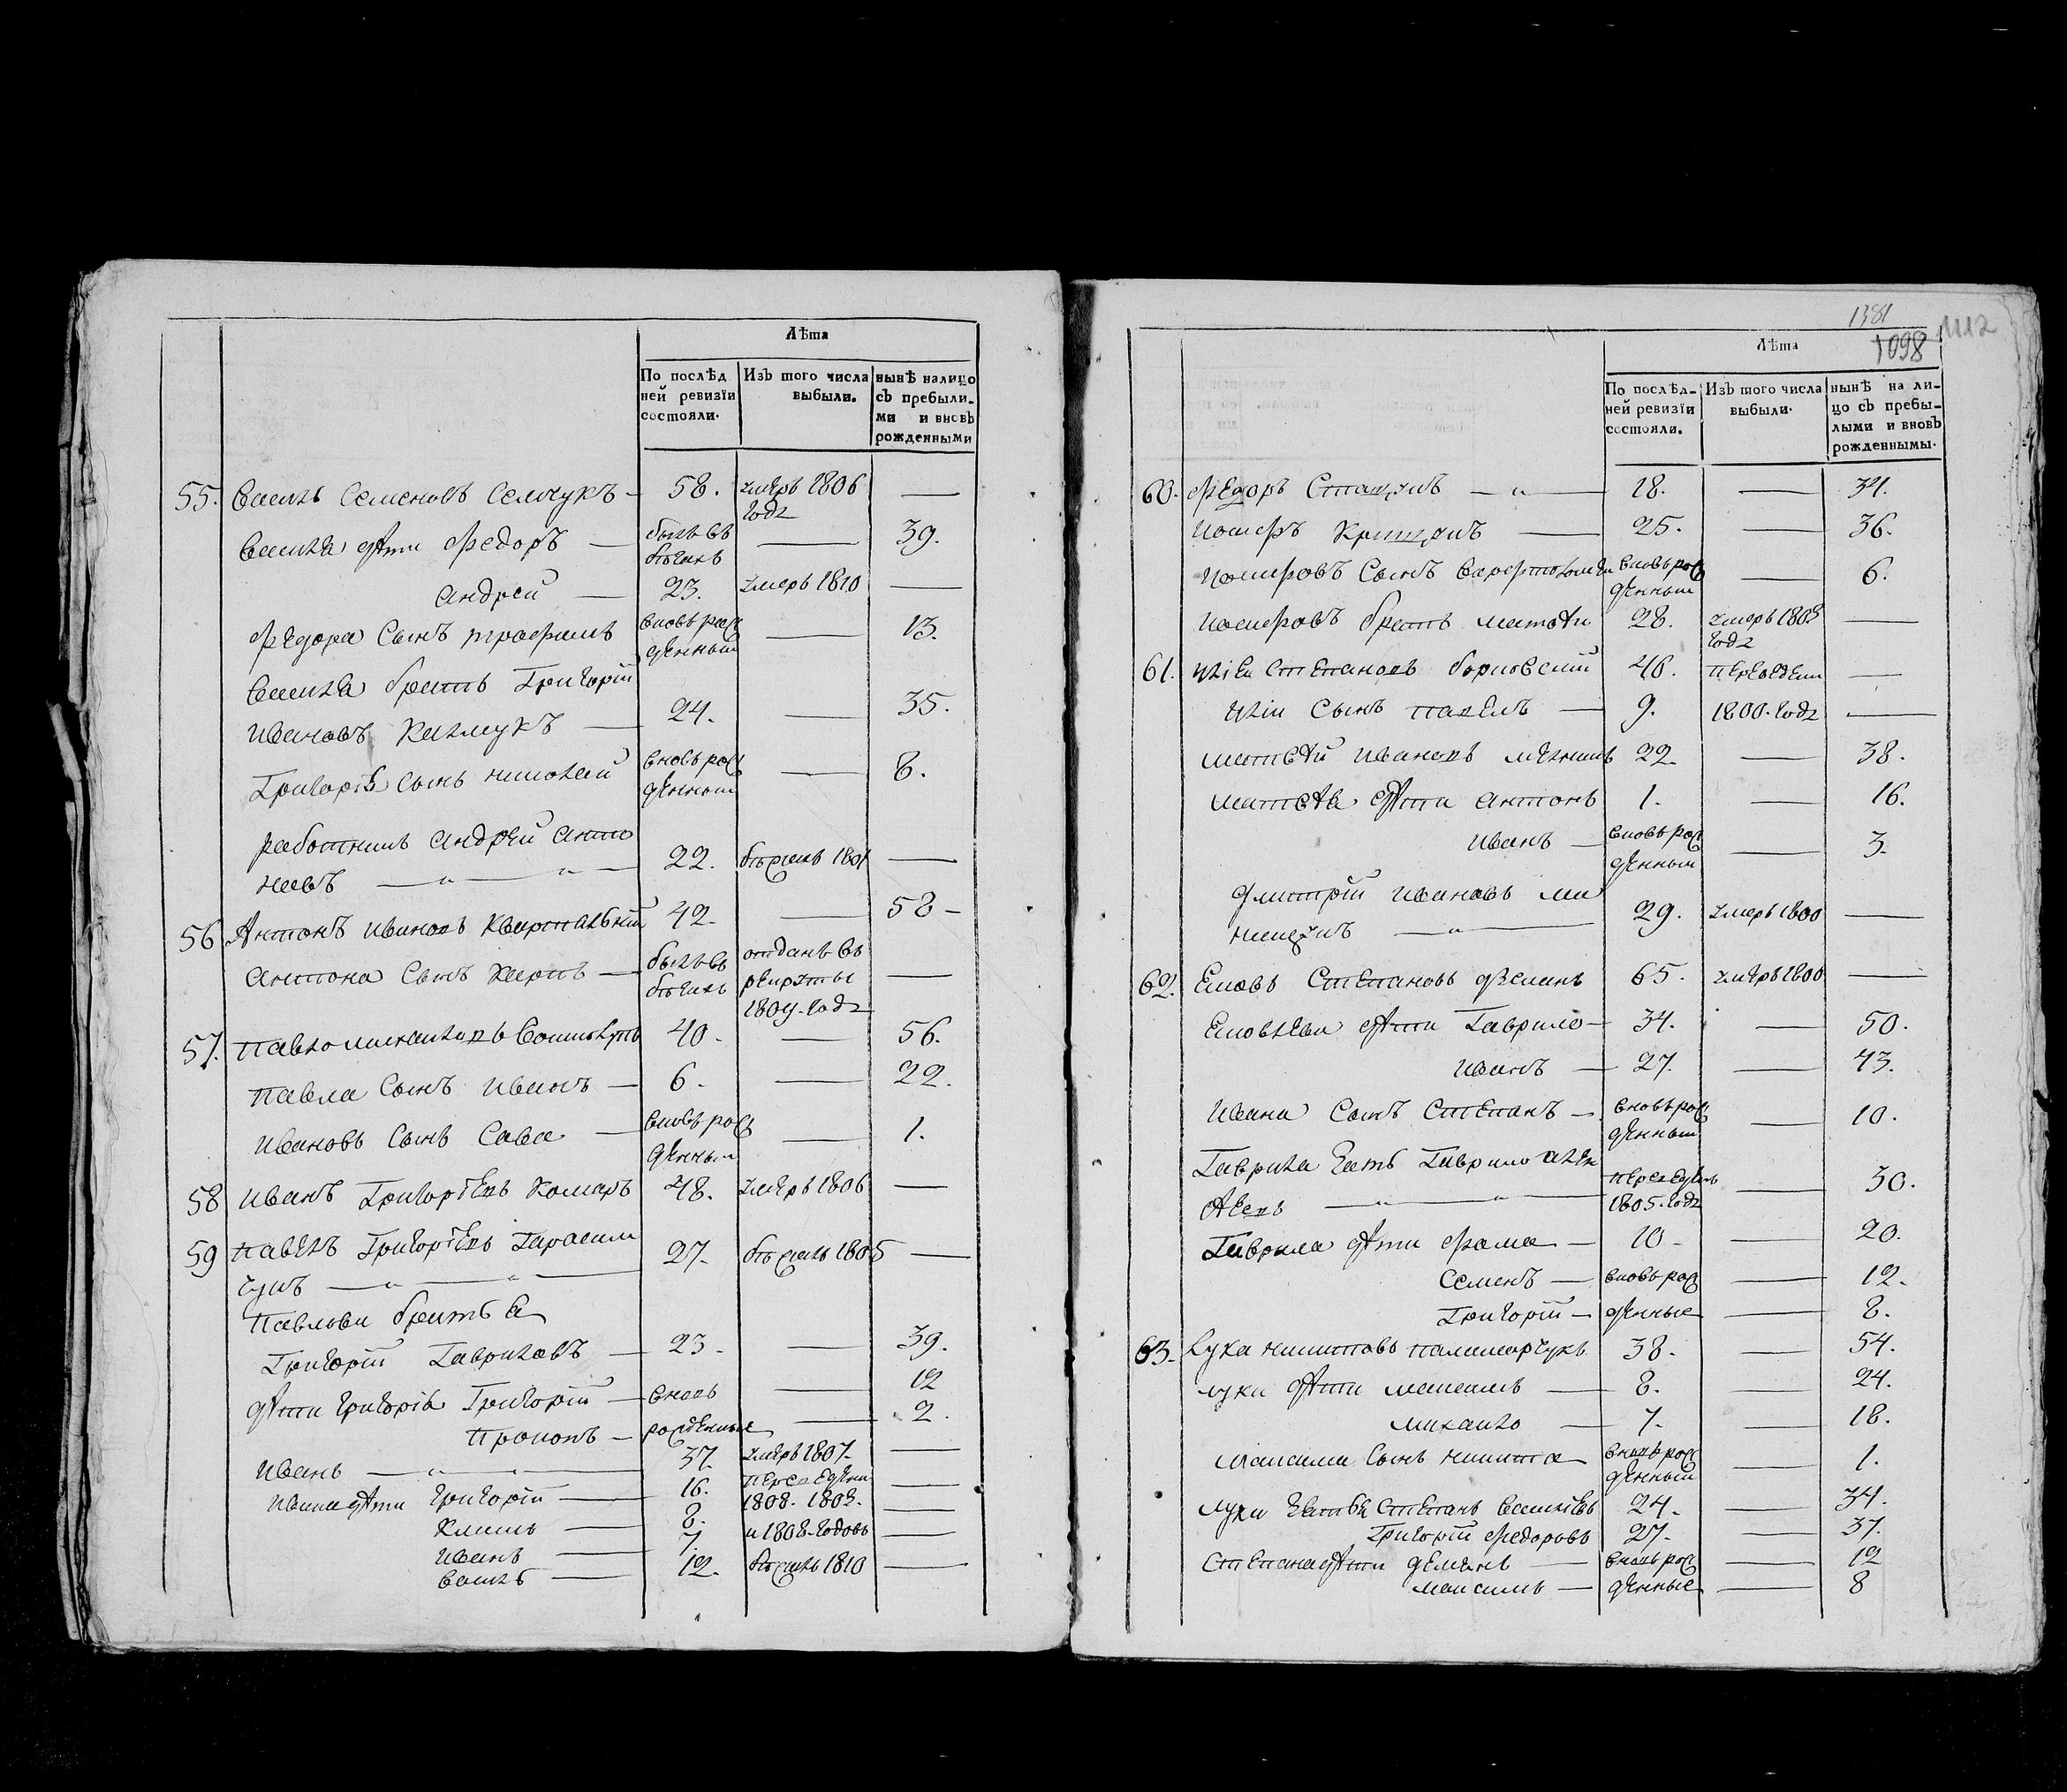 Лѣта
По послѣд
ней ревизїи
состояли.
Изъ того числа
выбыли.
нынѣ налицо
съ пребыли-
ми и вновь
рожденными
55. Василь Семеновъ Семчукъ — 58. умеръ 1806 года —
Василя дѣти Федоръ — былъ въ бѣгахъ — 39.
Андрей — 23. умеръ 1810 —
Федора Сынъ Трофимъ вновь рожденный — 13.
Василя братъ Григорій
Ивановъ — 24. — 35.
Григорія сынъ Николай вновь рожденный — 8.
работникъ Андрей Анто
новъ — 22. бѣжалъ 1801 —
56 Антонъ Ивановъ 42. — 58 —
Антона Сынъ Карпъ — былъ въ бѣгахъ отданъ въ рекруты 1809. года —
57. Павло Михайловъ 40. — 56.
Павла Сынъ Иванъ — 6. — 22.
Ивановъ Сынъ Сава — вновь рожденный — 1.
58 Иванъ Григорїевъ Комаръ 48. умеръ 1806 —
59 Павелъ Григорїевъ Гарасим
чукъ — 27. бѣжалъ 1805 —
Павловы братья
Григорій Гавриловъ — 23. — 39.
дѣти Григорія Григорій — вновь — 12
Прокопъ — рожденные — 2.
Иванъ — 37. умеръ 1807. —
Ивана дѣти Григорій — 16. переведены —
Климъ — 8. 1808. 1803. —
Иванъ — 7. и 1808. годовъ —
Василь — 12. бѣжалъ 1810 —
1381
1112
1098
Лѣта
По послѣд-
ней ревизїи
состояли.
Изъ того числа
выбыли.
нынѣ на ли-
цо съ пребы-
лыми и вновь
рожденнымы.
60. Федоръ — 18. — 34.
Іосифъ — 25. — 36.
Іосифовъ Сынъ Варфоломей вновь рожденный — 6.
Іосифовъ братъ Матвѣй 28. умеръ 1803 года —
61. Илїя Степановъ Борковский 46. переведены —
Иліи Сынъ Павелъ — 9. 1800. года —
Матвѣй Ивановъ 22. — 38.
Матвѣя дѣти Антонъ 1. — 16.
Иванъ — вновь рожденный — 3.
Дмитрій Ивановъ
— 29. умеръ 1800 —
62. Степановъ 65. умеръ 1800 —
дѣти Гаврило — 34. — 50.
Иванъ — 27. — 43.
Ивана Сынъ Степанъ — вновь рожденный — 10.
Гаврила зять Гаврило Алек
сѣевъ — переведенъ 1805. года — 30.
Гаврила дѣти Фома — 10 — 20.
Семенъ — вновь рож — 12.
Григорій — денные — 8.
63. Лука Никитовъ Паламарчукъ 38. — 54.
Луки дѣти Максимъ — 8. — 24.
Михайло — 7. — 18.
Максима Сынъ Никита вновь рожденный — 1.
Луки зятья Степанъ Василїевъ 24. — 34.
Григорій Федоровъ 27. — 37.
Степана дѣти Демянъ — вновь рож — 12
Максимъ — денные — 8